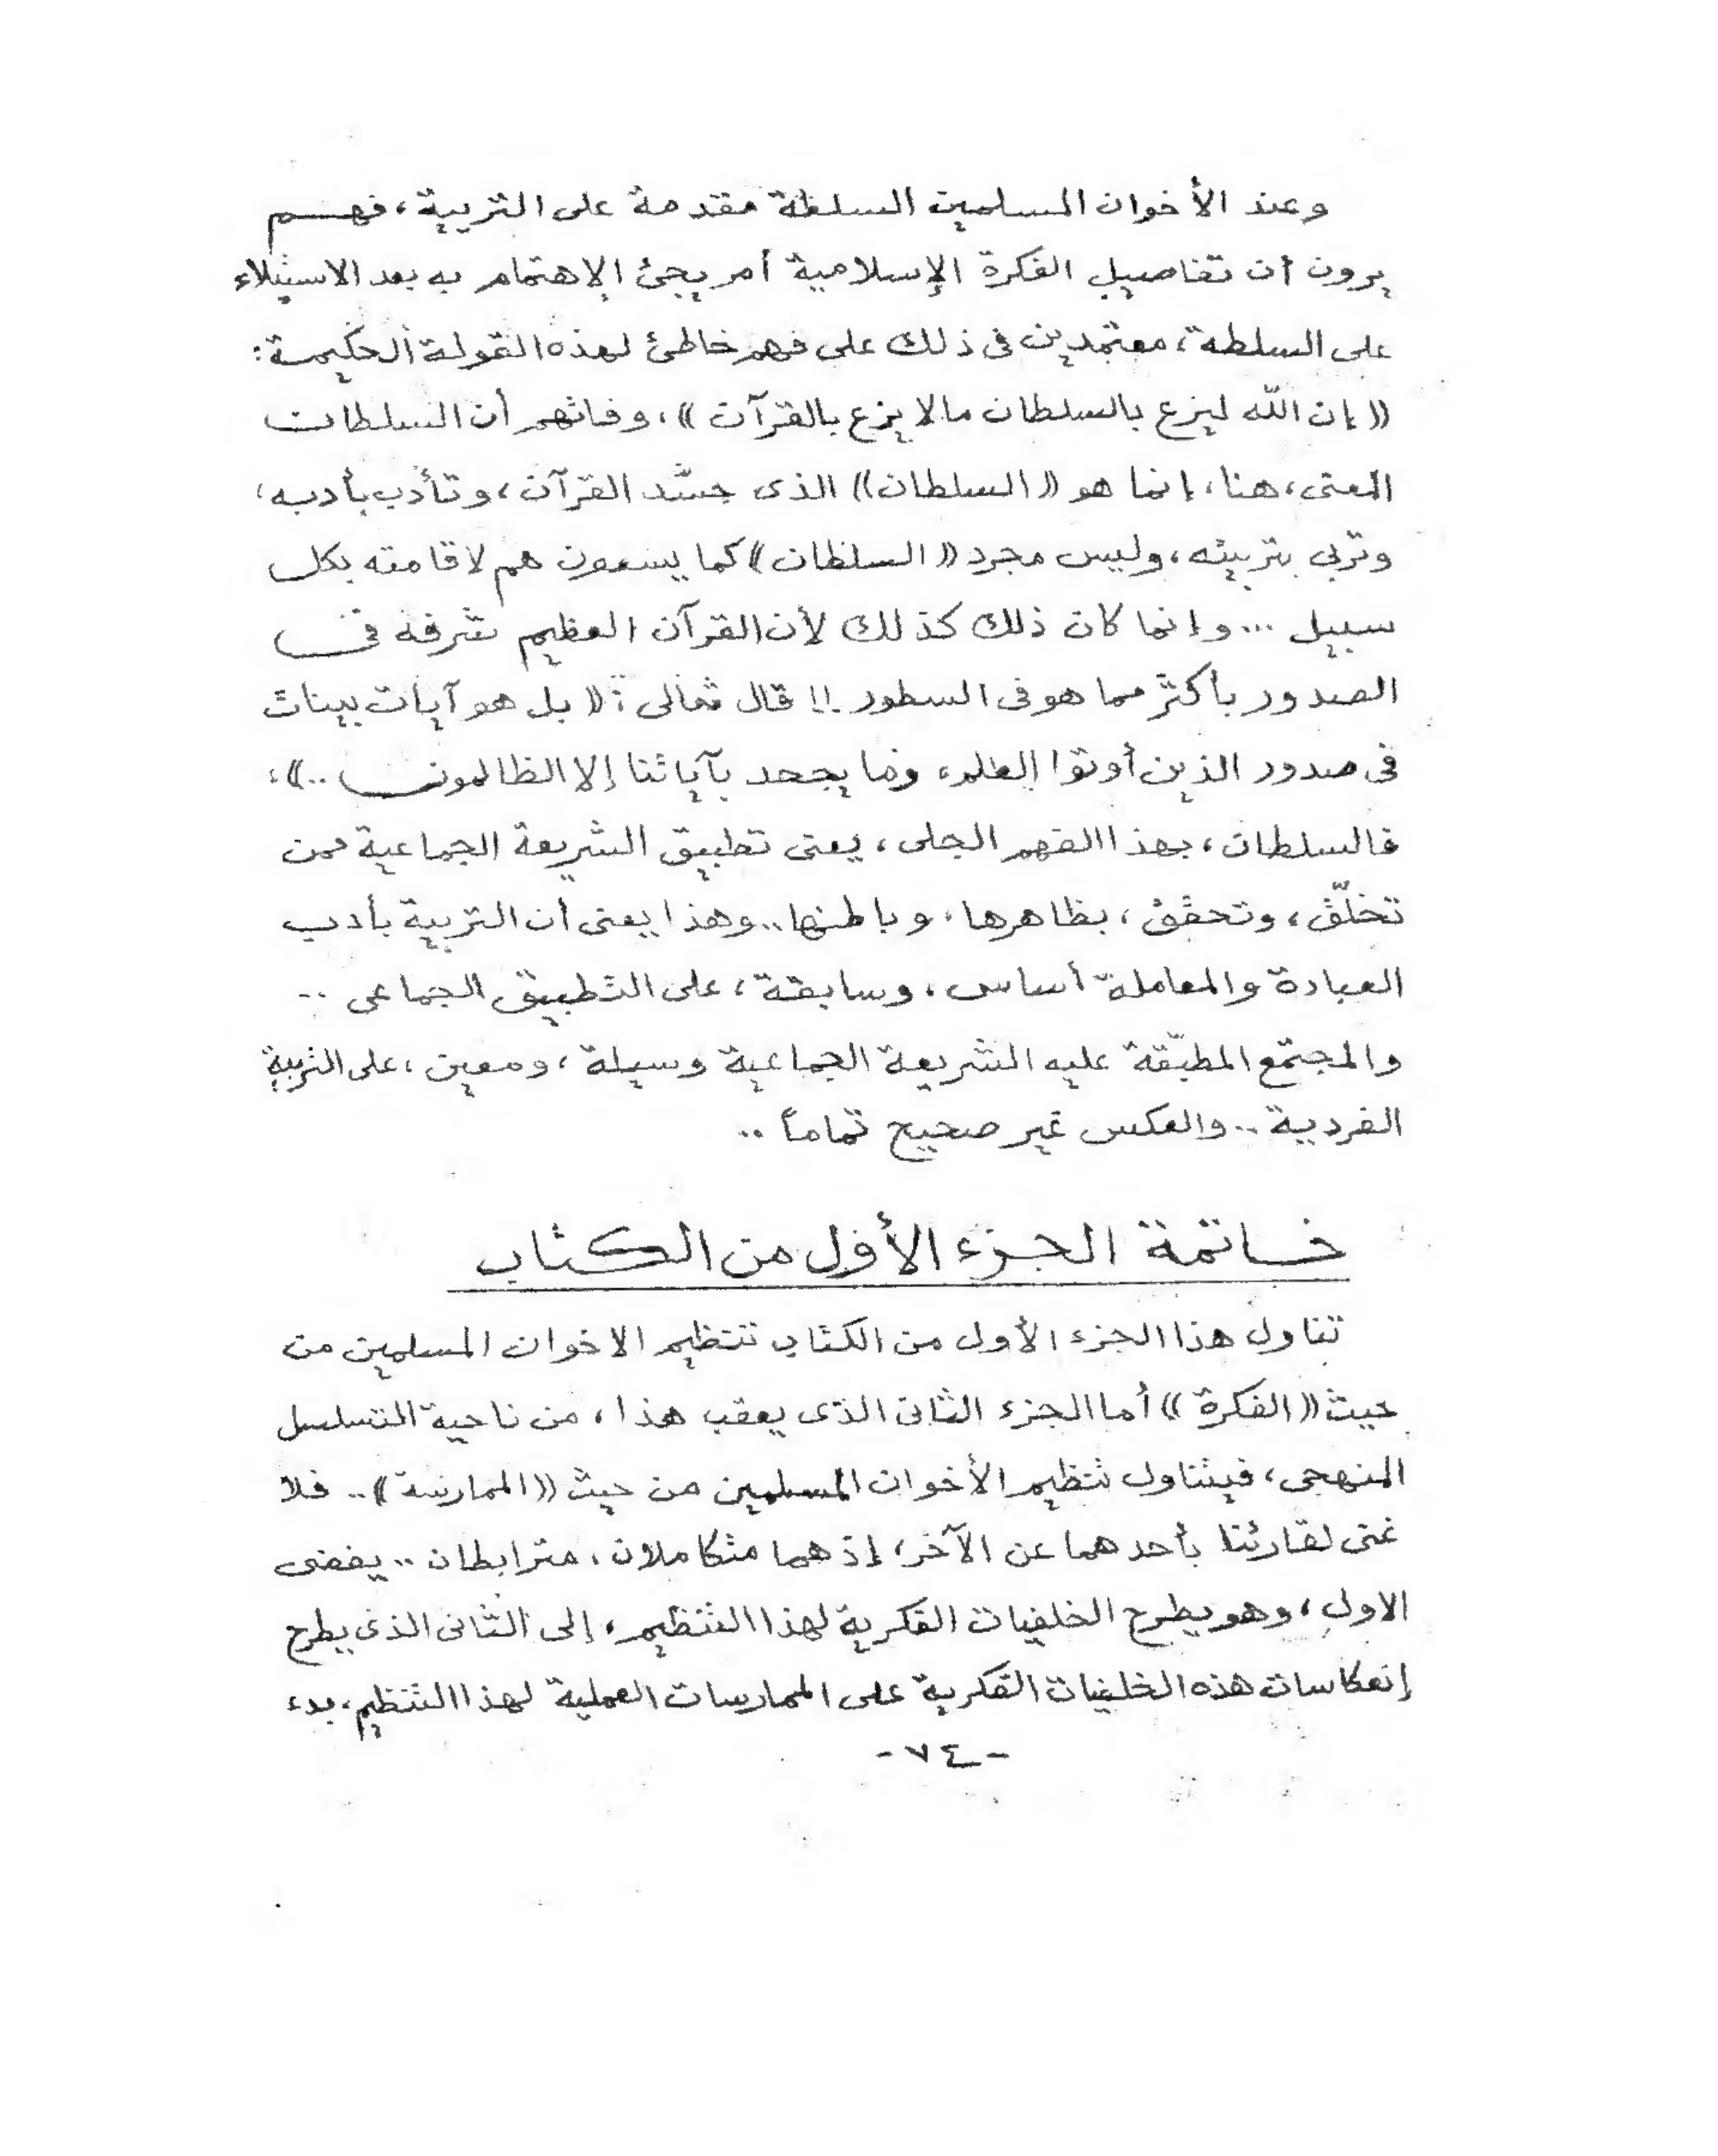 وعند الأخوان المسلمين السلطة مقدمة على التربية، فهم
يرون أن تفاصيل الفكرة الإسلامية أمر يجئ الإهتمام به بعد الاستيلاء
على السلطة، معتمدين فى ذلك على فهم خاطئ لهذه القولة الحكيمة:
((إن الله ليزع بالسلطان مالا يزع بالقرآن))، وفاتهم أن السلطان
المعنى، هنا، إنما هو ((السلطان)) الذى جسّد القرآن، وتأدب بأدبه،
وتربى بتربيته، وليس مجرد ((السلطان)) كما يسعون هم لاقامته بكل
سبيل ... وإنما كان ذلك كذلك لأن القرآن العظيم شرفه فى
الصدور بأكثر مما هو فى السطور!! قال تعالى: ((بل هو آيات بينات
فى صدور الذين أوتوا العلم، وما يجحد بآياتنا إلا الظالمون ..))،
فالسلطان، بهذا الفهم الجلى، يعنى تطبيق الشريعة الجماعية ممن
تخلّق، وتحقق، بظاهرها، وباطنها.. وهذا يعنى أن التربية بأدب
العبادة والمعاملة أساس، وسابقة، على التطبيق الجماعى ..
والمجتمع المطبّقة عليه الشريعة الجماعية وسيلة، ومعين، على التربية
الفردية .. والعكس غير صحيح تماماً ..
خاتمة الجزء الأول من الكتاب
تناول هذا الجزء الأول من الكتاب تنظيم الاخوان المسلمين من
حيث ((الفكرة)) أما الجزء الثانى الذى يعقب هذا، من ناحية التسلسل
المنهجى، فيتناول تنظيم الأخوان المسلمين من حيث ((الممارسة)).. فلا
غنى لقارئنا بأحدهما عن الآخر، إذ هما متكاملان، مترابطان .. يفضى
الاول، وهو يطرح الخلفيات الفكرية لهذا التنظيم، إلى الثانى الذى يطرح
إنعكاسات هذه الخلفيات الفكرية على الممارسات العملية لهذا التنظيم، بدء
- ٧٤ -